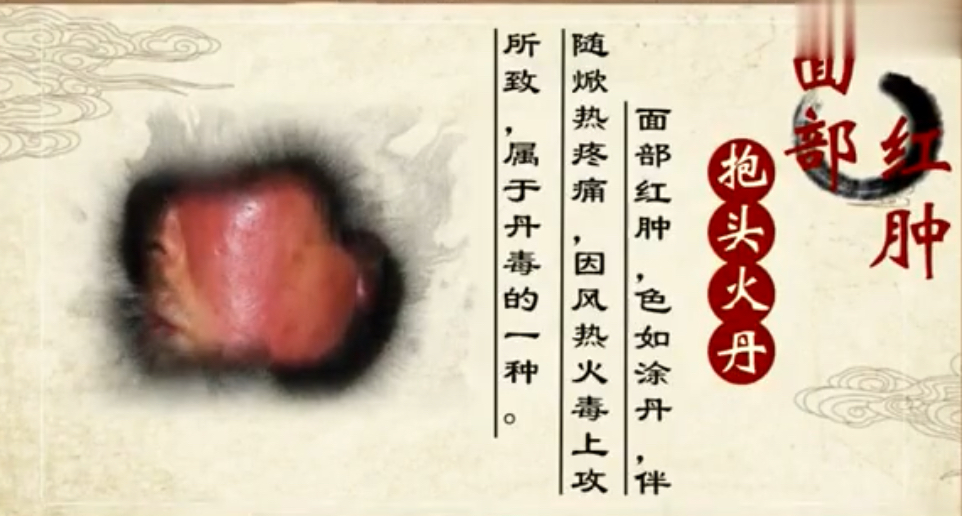 面部
红肿
抱头火丹
面部红肿，色如涂丹，伴
随焮热疼痛，因风热火毒上攻
所致，属于丹毒的一种。